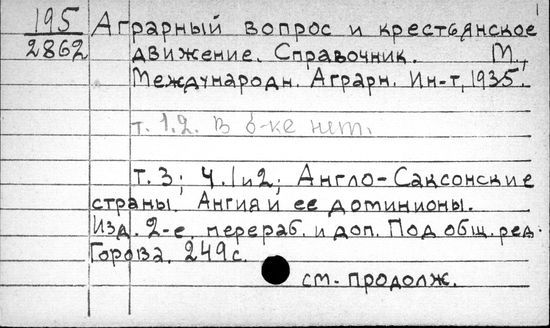 195
2862
Аграрный вопрос и крестьянское
движение. Справочник. М.,
Международн. Аграрн. Ин-т, 1935.
т. 1.2. в б-ке нет.
т. 3; ч. 1 и 2; Англо-Саксонские
страны. Ангия и ее доминионы.
Изд. 2-е, перераб. и доп. Под общ. ред.
Горова. 249 с.
см. продолж.